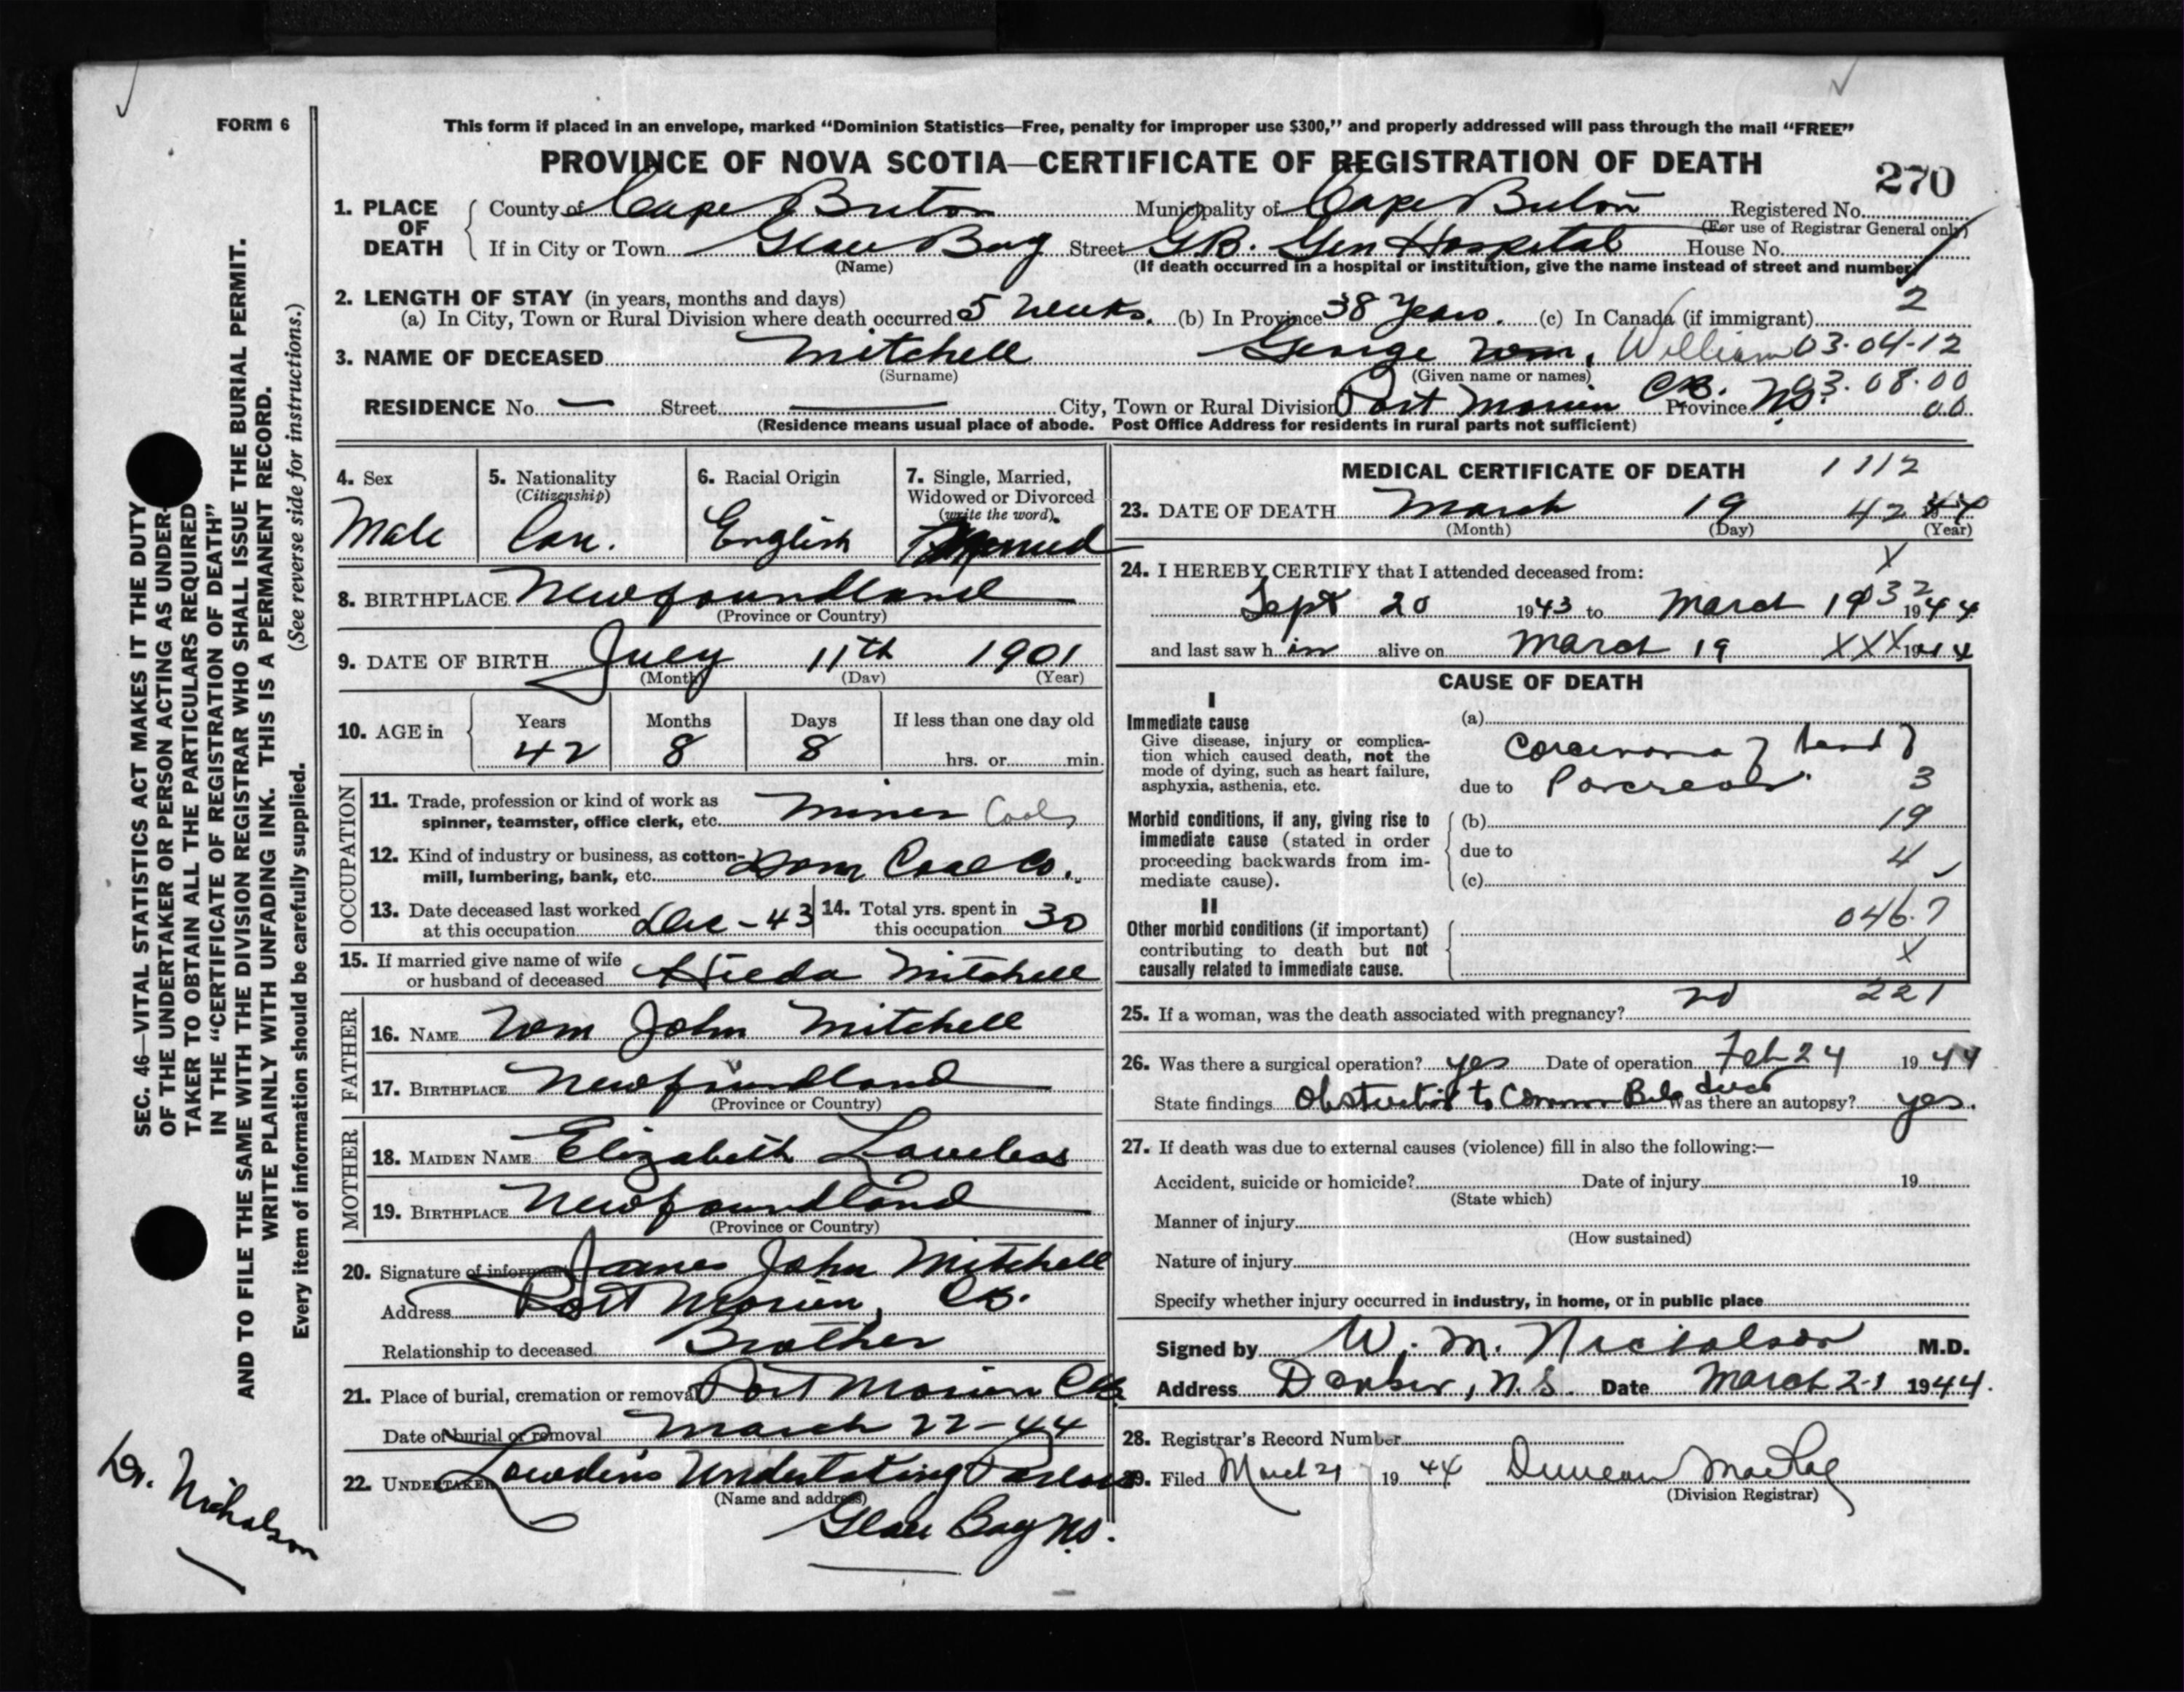 FORM 6
This form if placed in an envelope, marked “Dominion Statistics—Free, penalty for improper use $300,” and properly addressed will pass through the mail “FREE”
PROVINCE OF NOVA SCOTIA—CERTIFICATE OF REGISTRATION OF DEATH
270
1. PLACE OF DEATH
County of Cape Breton Municipality of Cape Breton Registered No.
(For use of Registrar General only)
If in City or Town Glace Bay Street G.B. Gen Hospital House No.
(Name) (If death occurred in a hospital or institution, give the name instead of street and number)
2. LENGTH OF STAY (in years, months and days) 2
(a) In City, Town or Rural Division where death occurred 5 weeks. (b) In Province 38 years. (c) In Canada (if immigrant)
3. NAME OF DECEASED Mitchell George Wm, William 03-04-12
(Surname) (Given name or names)
C.B. 03.08.00
RESIDENCE No. — Street — City, Town or Rural Division Port Morien Province N.S. 00
(Residence means usual place of abode. Post Office Address for residents in rural parts not sufficient)
4. Sex Male
5. Nationality (Citizenship) Can.
6. Racial Origin English
7. Single, Married, Widowed or Divorced (write the word) Married
8. BIRTHPLACE Newfoundland
(Province or Country)
9. DATE OF BIRTH July 11th 1901
(Month) (Day) (Year)
10. AGE in Years Months Days If less than one day old
42 8 8 hrs. or min.
OCCUPATION
11. Trade, profession or kind of work as spinner, teamster, office clerk, etc. Miner Coal
12. Kind of industry or business, as cotton-mill, lumbering, bank, etc. Dom Coal Co.
13. Date deceased last worked at this occupation Dec - 43
14. Total yrs. spent in this occupation 30
15. If married give name of wife or husband of deceased Hilda Mitchell
FATHER
16. NAME Wm John Mitchell
17. BIRTHPLACE Newfoundland
(Province or Country)
MOTHER
18. MAIDEN NAME Elizabeth Loveless
19. BIRTHPLACE Newfoundland
(Province or Country)
20. Signature of informant James John Mitchell
Address Port Morien, C.B.
Relationship to deceased Brother
21. Place of burial, cremation or removal Port Morien CB
Date of burial or removal March 22-44
22. UNDERTAKER Lowden's Undertaking Parlors
(Name and address)
Glace Bay N.S.
MEDICAL CERTIFICATE OF DEATH 1112
23. DATE OF DEATH March 19 42 44
(Month) (Day) (Year)
X
24. I HEREBY CERTIFY that I attended deceased from:
Sept 20 1943 to March 19 32 1944
and last saw h im alive on March 19 XXX 1944
CAUSE OF DEATH
I
Immediate cause
Give disease, injury or complication which caused death, not the mode of dying, such as heart failure, asphyxia, asthenia, etc.
(a) Carcinoma of head of
due to Pancreas. 3
Morbid conditions, if any, giving rise to immediate cause (stated in order proceeding backwards from immediate cause).
(b) 19
due to 4
(c)
II
Other morbid conditions (if important) contributing to death but not causally related to immediate cause.
046.7
X
221
25. If a woman, was the death associated with pregnancy? no
26. Was there a surgical operation? yes Date of operation Feb 24 1944
State findings Obstruction to Common Bile duct Was there an autopsy? yes.
27. If death was due to external causes (violence) fill in also the following:—
Accident, suicide or homicide? Date of injury 19
(State which)
Manner of injury
(How sustained)
Nature of injury
Specify whether injury occurred in industry, in home, or in public place
Signed by W. M. Nicholson M.D.
Address Donkin, N.S. Date March 21 1944.
28. Registrar's Record Number
29. Filed March 21 1944 Duncan MacRae
(Division Registrar)
SEC. 46—VITAL STATISTICS ACT MAKES IT THE DUTY
OF THE UNDERTAKER OR PERSON ACTING AS UNDER-
TAKER TO OBTAIN ALL THE PARTICULARS REQUIRED
IN THE “CERTIFICATE OF REGISTRATION OF DEATH”
AND TO FILE THE SAME WITH THE DIVISION REGISTRAR WHO SHALL ISSUE THE BURIAL PERMIT.
WRITE PLAINLY WITH UNFADING INK. THIS IS A PERMANENT RECORD.
Every item of information should be carefully supplied. (See reverse side for instructions.)
Dr. Nicholson